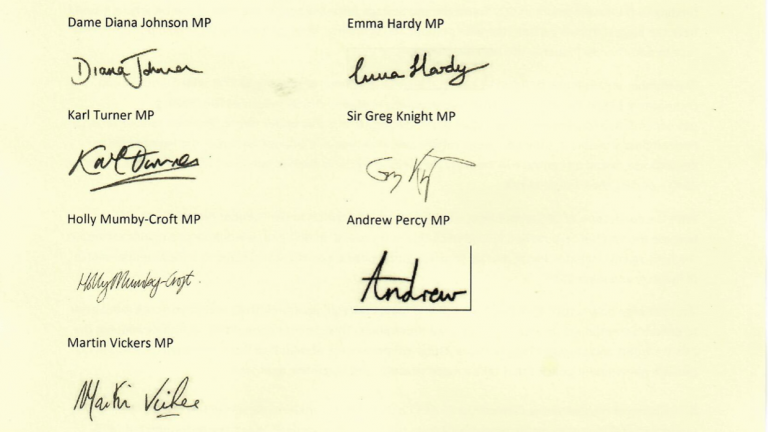 Dame Diana Johnson MP
Emma Hardy MP
Diana Johnson
Emma Hardy
Karl Turner MP
Sir Greg Knight MP
Karl Turner
Greg Knight
Holly Mumby-Croft MP
Andrew Percy MP
Holly Mumby-Croft.
Andrew
Martin Vickers MP
Martin Vickers